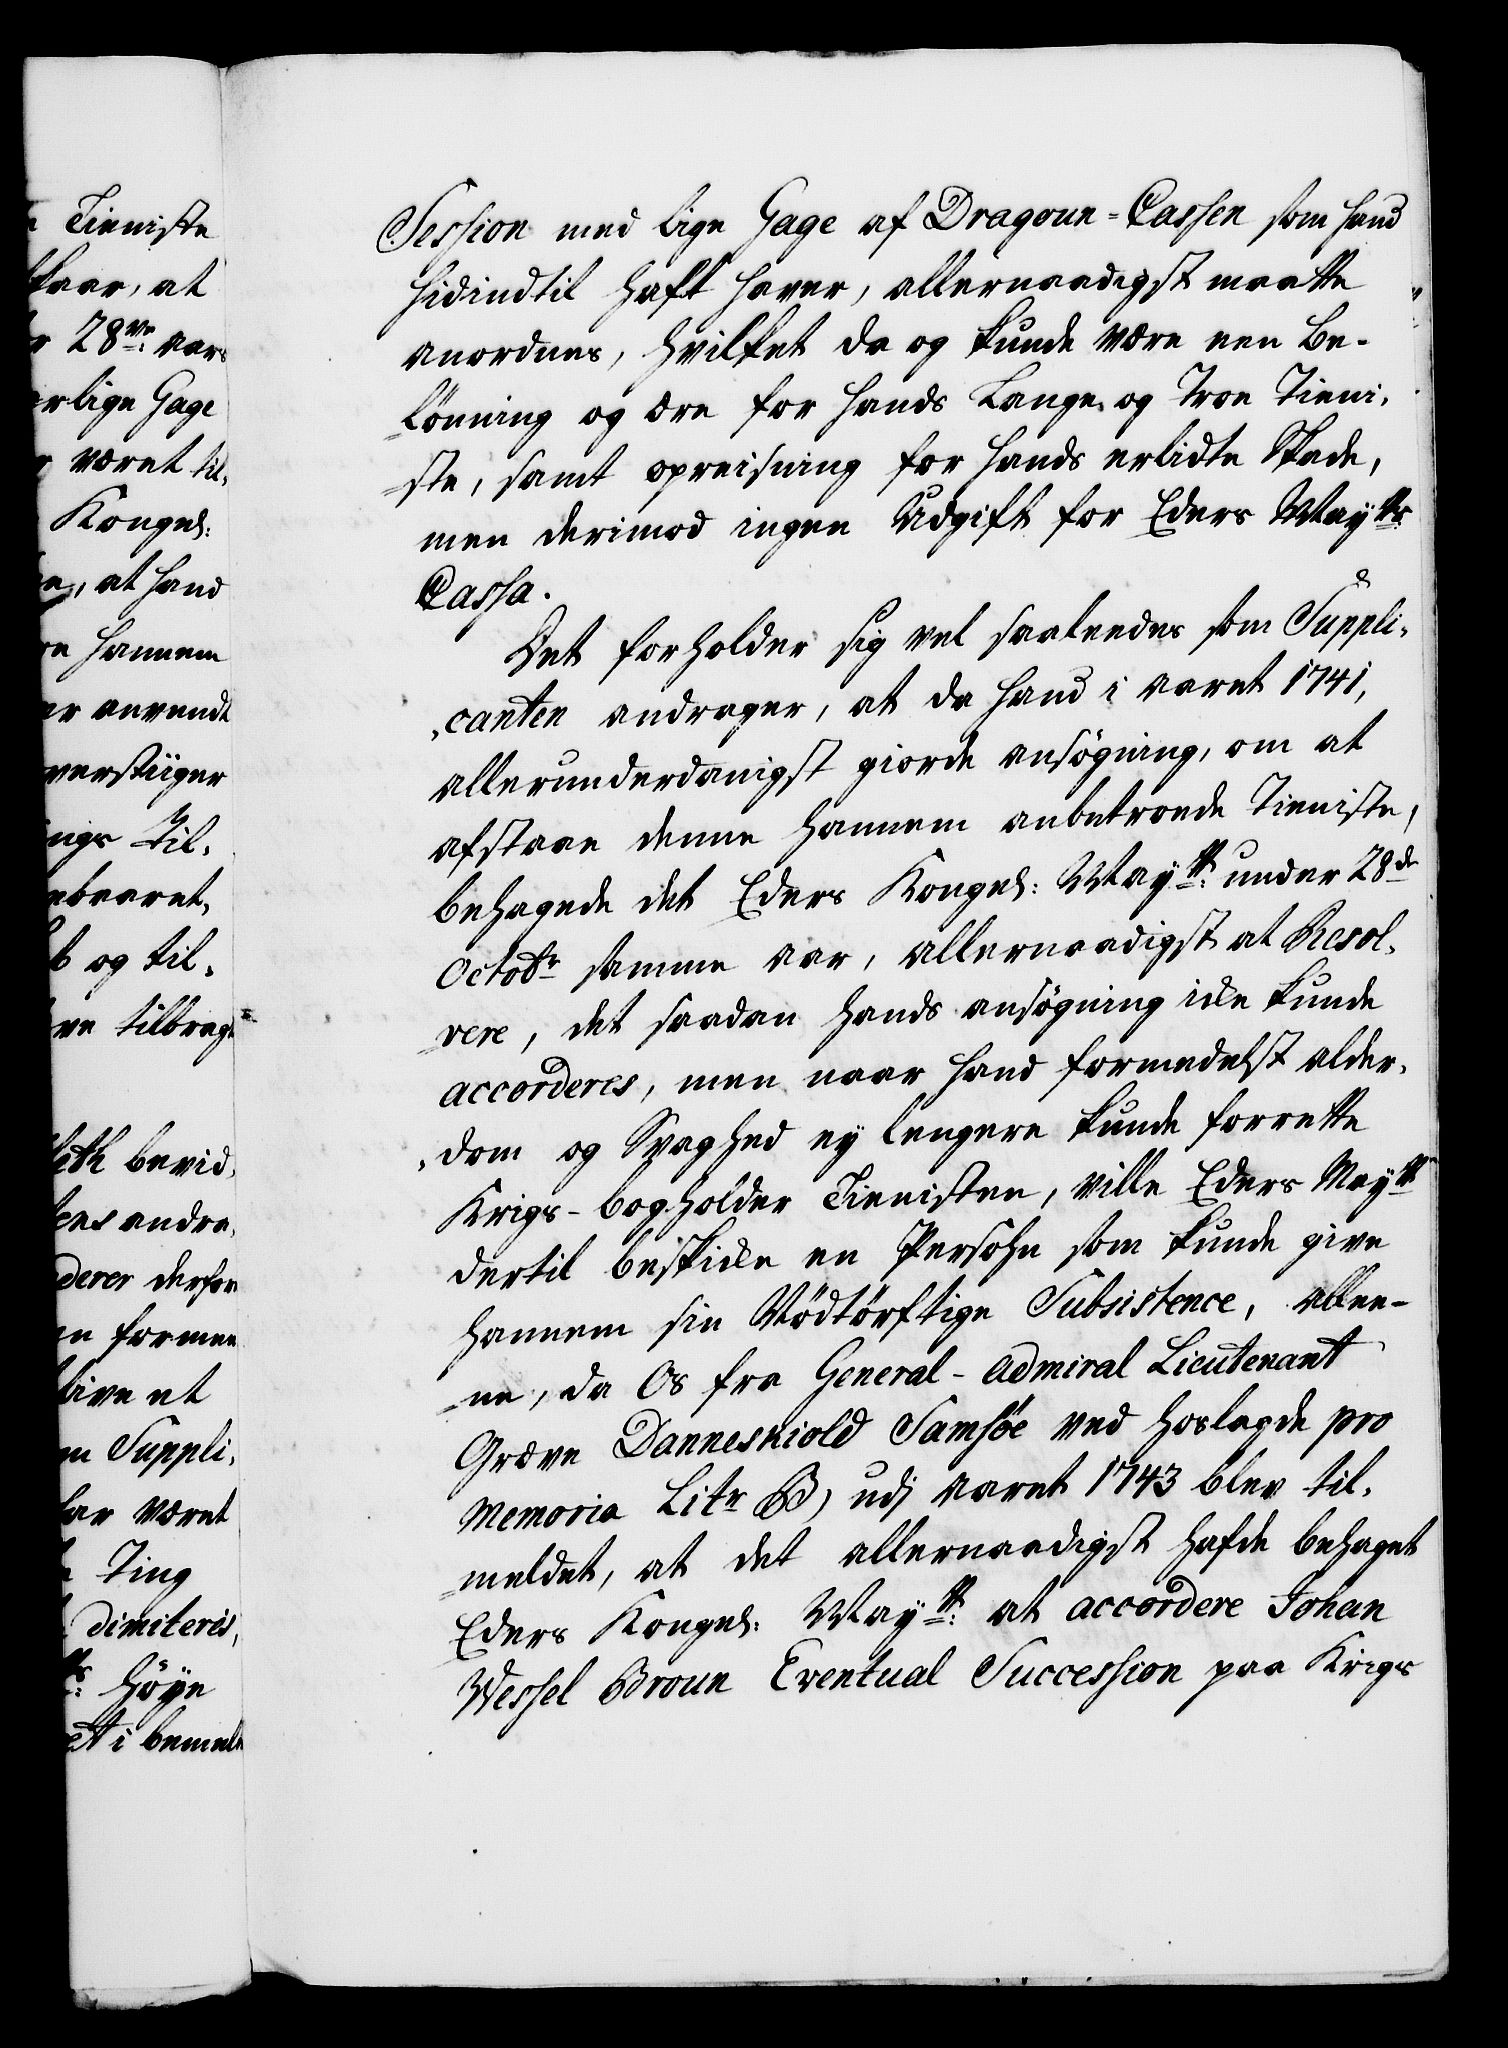 Tieniste
skaar, at
28ve aars
erlige Gage
været til,
Kongel:
at hand
hannem
er anvendt
verstiiger
ings Til,
ebaaret,
og til,
ve tilbragt
bevid,
andra,
derer derfor
formee
blive et
m Suppli,
har været
Ting
dimiteris,
Höye
et i bemelte
Session med lige Gage af Dragoun=Cassen som hand
hidindtil haft haver, allernaadigst maatte
anordnes, hvilket da og kunde være een Be-
lönning og ære for hands Lange og Troe Tieni,
ste, samt opreisning for hands erlidte Skade,
men derimod ingen Udgift for Eders Mayts
Cassa.
Det forholder sig vel saaleedes som Suppli,
canten andrager, at da hand i aaret 1741,
allerunderdanigst giorde ansögning, om at
afstaae denne hannem anbetroede Tieniste,
behagede det Eders Kongel: Mayt: under 28de
Octobr samme aar, allernaadigst at Resol,
vere, det saadan hands ansögning icke kunde
accorderes, men naar hand formedelst alder,
dom og Svaghed ey lengere kunde forrette
Krigs-bogholder Tienisten, ville Eders Mayt
dertil beskicke en Persohn som kunde give
hannem sin Nödtörftige Subsistence, allee-
ne, da Os fra General-Admiral Lieutenant
Græve Danneskiold Samsöe ved hoslagde pro
Memoria Litr B) udj aaret 1743 blev til,
meldet, at det allernaadigst hafde behaget
Eders Kongel: Mayt: at accordere Johan
Wessel Broun Eventual Succession paa Krigs